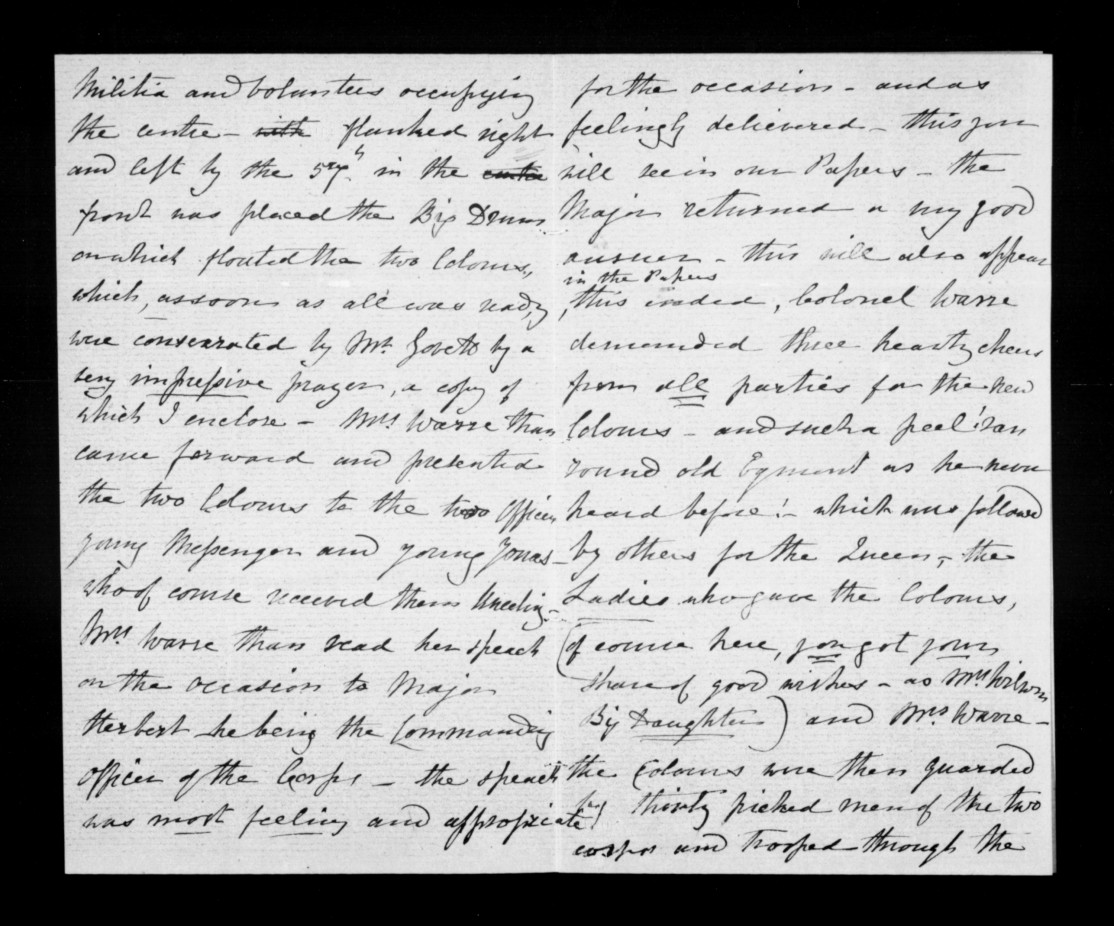 Militia and Volunteers occupying
the centre - with flanked right
and left by the 57th. in the centre
front was placed the Big Drum
on which floated the two Colours,
which, as soon as all was ready,
were consecrated by Mr. Govett by a
very impressive prayer, a copy of
which I enclose - Mrs Warre than
came forward and presented
the two Colours to the two Officers
young Messenger and young Jonas -
who of course received them kneeling -
Mrs Warre than read her speach
on the occasion to Major
Herbert he being the Commanding
Officer of the Corps - the speach
was most feeling and appropriate
for the occasion - and as
feelingly delievered - this you
will see in our Papers - the
Major returned a very good
answer - this will also appear
in the Papers
, this ended, Colonel Warre
demended three hearty cheers
from all parties for the new
Colours - and such a peel! ran
round old Egmont as he never
heard before! - which was followed
by others for the Queen, - the
Ladies who gave the Colours,
(of course here, you got your
share of good wishes - as Mrs Wilsons
Big Daughter) and Mrs Warre -
the Colours were then guarded
by thirty picked men of the two
corps and trooped through the